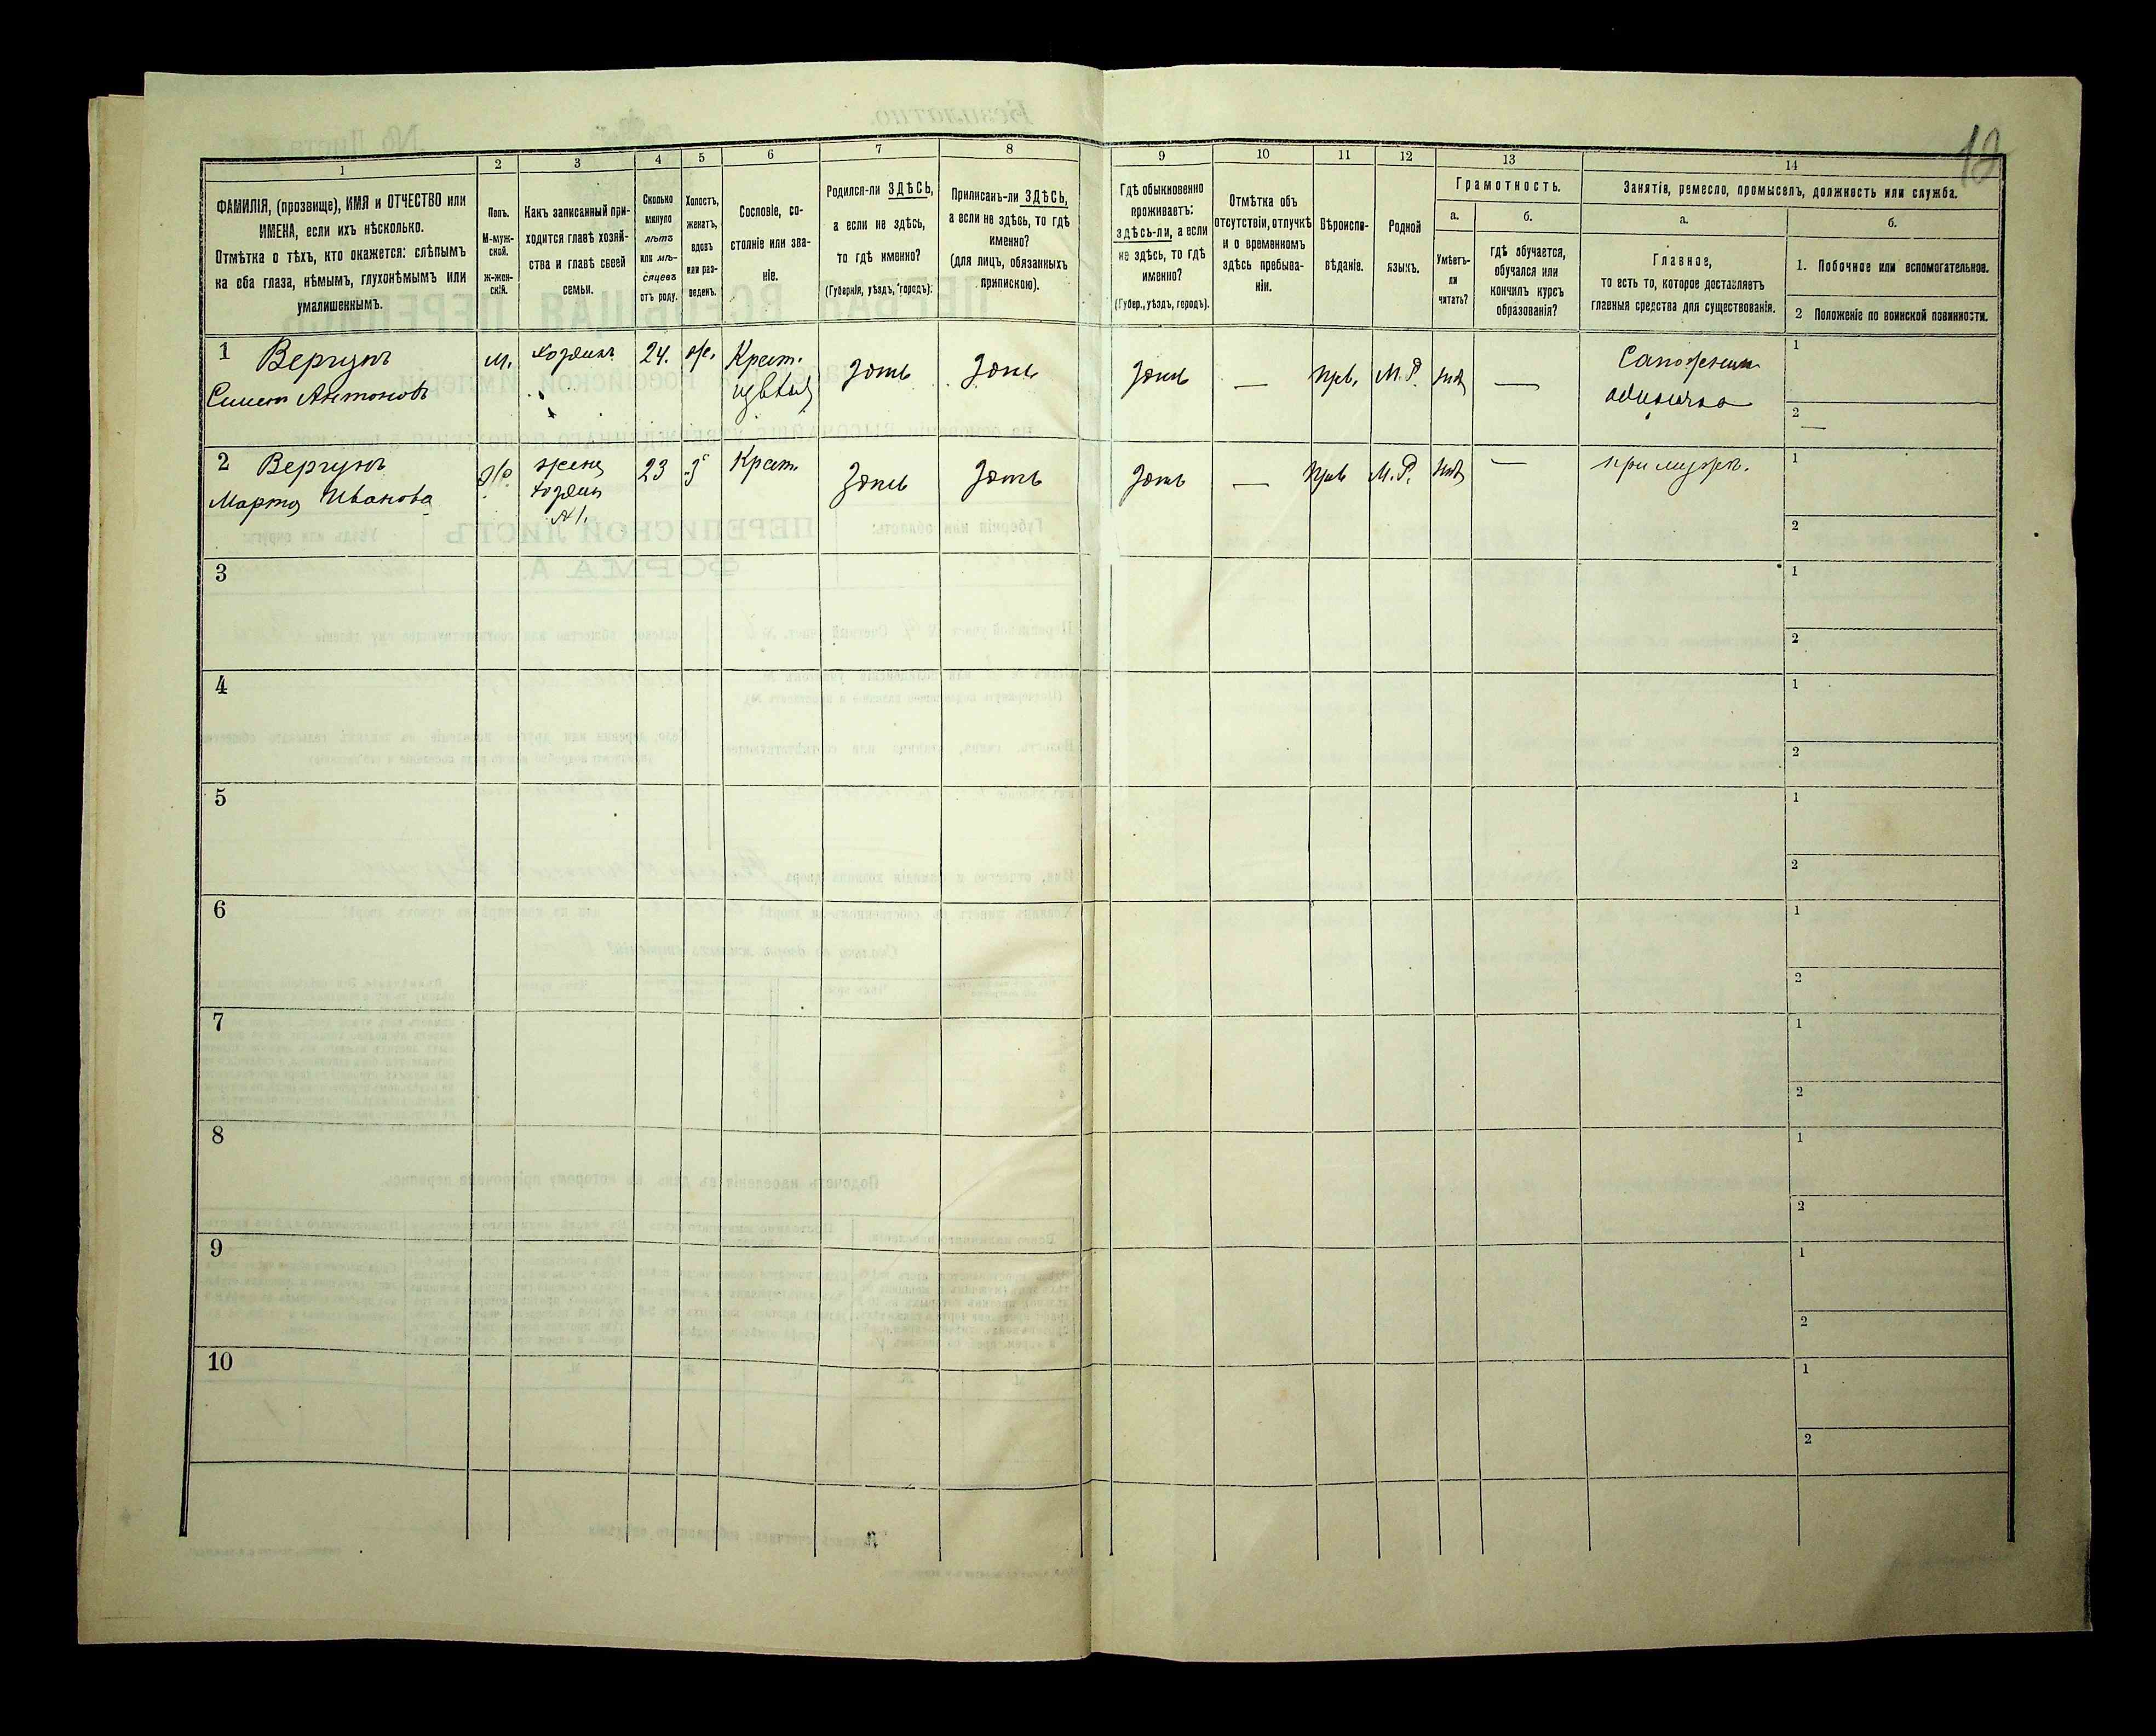 12
1
2
3
4
5
6
7
8
9
10
11
12
13
14
ФАМИЛІЯ, (прозвище), ИМЯ и ОТЧЕСТВО или
ИМЕНА, если ихъ нѣсколько.
Отмѣтка о тѣхъ, кто окажется: слѣпымъ
на оба глаза, нѣмымъ, глухонѣмымъ или
умалишеннымъ.
Полъ.
М-муж-
ской.
ж-жен-
скій.
Какъ записанный при-
ходится главѣ хозяй-
ства и главѣ своей
семьи.
Сколько
минуло
лѣтъ
или мѣ-
сяцевъ
отъ роду.
Холостъ,
женатъ,
вдовъ
или раз-
веденъ.
Сословіе, со-
стояніе или зва-
ніе.
Родился-ли ЗДѢСЬ,
а если не здѣсь,
то гдѣ именно?
(Губернія, уѣздъ, городъ).
Приписанъ-ли ЗДѢСЬ,
а если не здѣсь, то гдѣ
именно?
(для лицъ, обязанныхъ
припискою).
Гдѣ обыкновенно
проживаетъ:
здѣсь-ли, а если
не здѣсь, то гдѣ
именно?
(Губер., уѣздъ, городъ).
Отмѣтка объ
отсутствіи, отлучкѣ
и о временномъ
здѣсь пребыва-
ніи.
Вѣроиспо-
вѣданіе.
Родной
языкъ.
Грамотность.
а.
Умѣетъ-
ли
читать?
б.
гдѣ обучается,
обучался или
кончилъ курсъ
образованія?
Занятія, ремесло, промыселъ, должность или служба.
а.
Главное,
то есть то, которое доставляетъ
главныя средства для существованія.
б.
1. Побочное или вспомогательное.
2 Положеніе по воинской повинности.
1 Вергунъ
Симеонъ Антоновъ
м.
хозяинъ
24.
ж.
Крест.
Здѣсь
Здѣсь
Здѣсь
—
прв.
М.Р.
нѣт
—
Сапожник
одиночка
1
2
—
2 Вергунъ
Марта Иванова
ж.
жена
хозяин
№1.
23
з
Крест.
Здѣсь
Здѣсь
Здѣсь
—
прв
М.Р.
нѣт
—
при мужѣ.
1
2
3
1
2
4
1
2
5
1
2
6
1
2
7
1
2
8
1
2
9
1
2
10
1
2